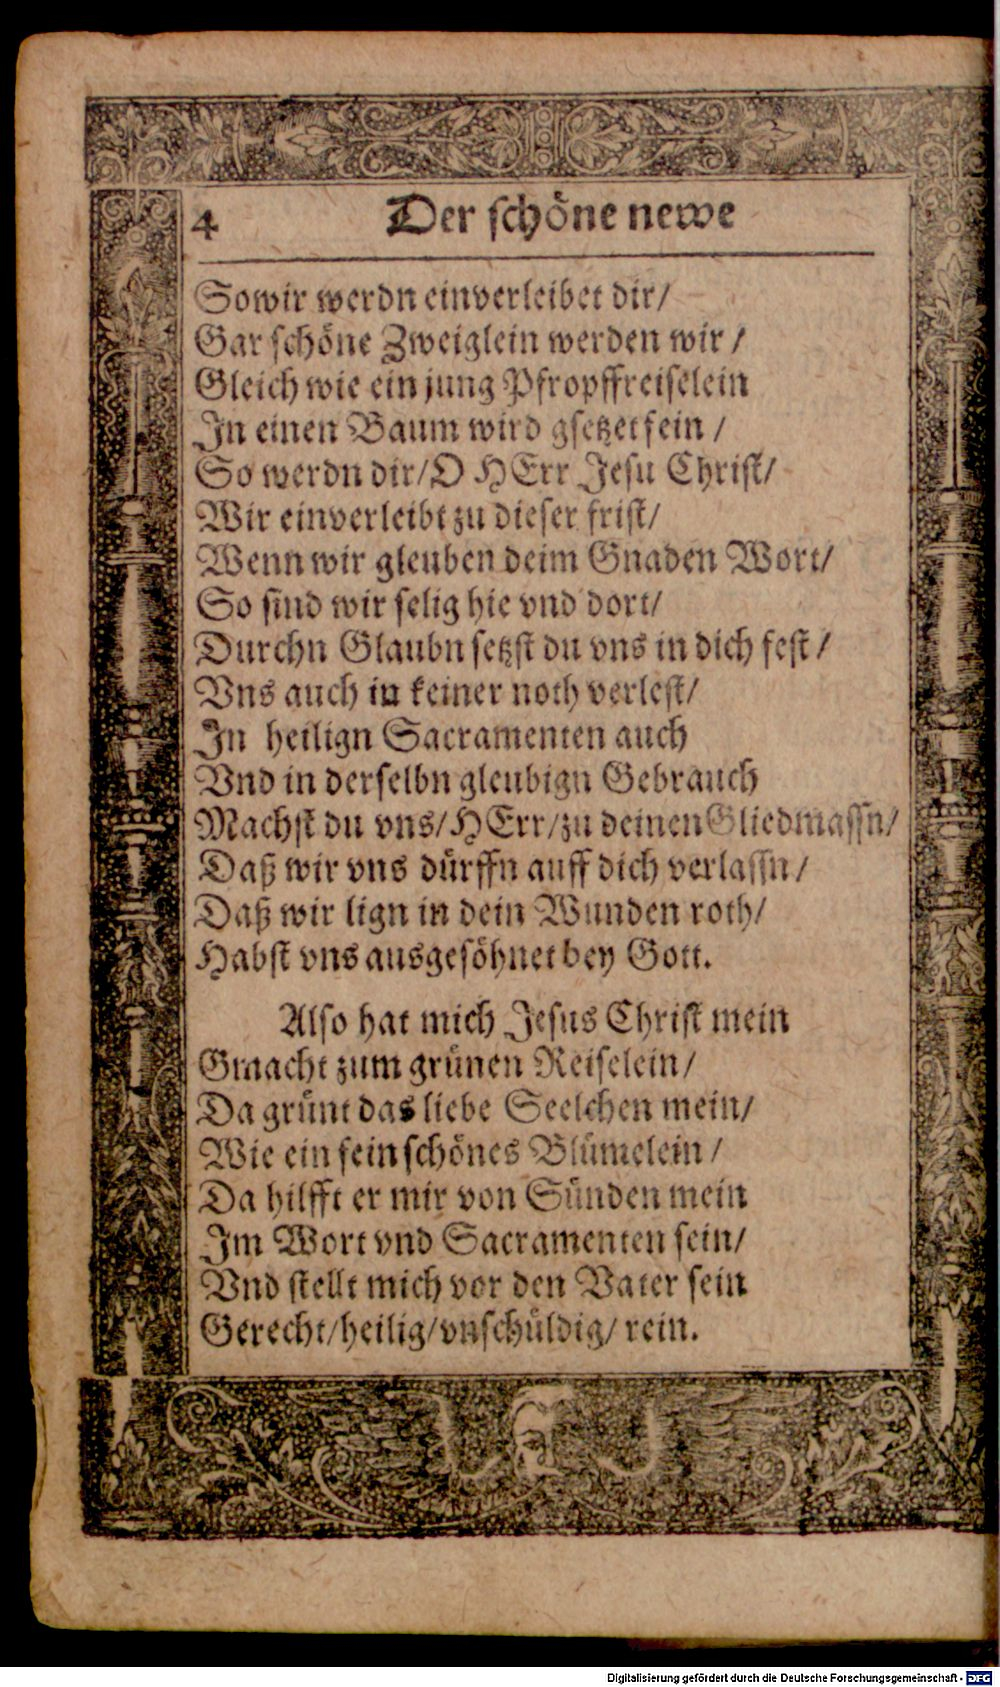 4 Der schöne newe
So wir werdn einverleibet dir/
Gar schöne Zweiglein werden wir /
Gleich wie ein jung Pfropffreiselein
In einen Baum wird gsetzet fein /
So werdn dir/ O HErr Jesu Christ/
Wir einverleibt zu dieser frist/
Wenn wir gleuben deim Gnaden Wort/
So sind wir selig hie vnd dort/
Durchn Glaubn setzst du vns in dich fest /
Vns auch in keiner noth verlest/
In heilign Sacramenten auch
Vnd in derselbn gleubign Gebrauch
Machst du vns/ HErr/ zu deinen Gliedmassn/
Daß wir vns dürffn auff dich verlassn/
Daß wir lign in dein Wunden roth/
Habst vns ausgesöhnet bey Gott.
Also hat mich Jesus Christ mein
Gmacht zum grünen Reiselein/
Da grünt das liebe Seelchen mein/
Wie ein fein schönes Blümelein /
Da hilfft er mir von Sünden mein
Im Wort vnd Sacramenten sein/
Vnd stellt mich vor den Vater sein
Gerecht/ heilig/ vnschüldig/ rein.
Digitalisierung gefördert durch die Deutsche Forschungsgemeinschaft - DFG